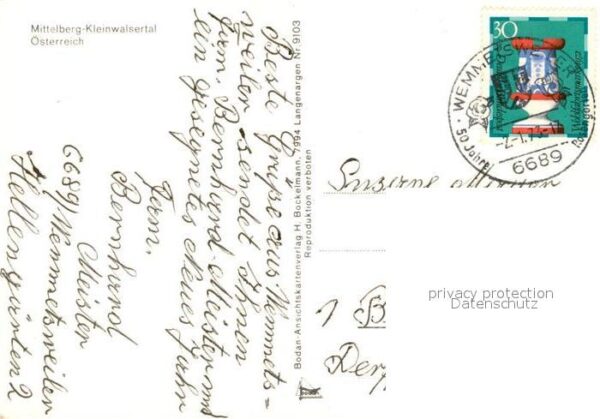 Mittelberg-Kleinwalsertal
Österreich
Beste Grüße aus Wemmets-
weiler sendet Ihnen
Fam. Bernhard Meister und
ein gesegnetes Neues Jahr
Fam.
Bernhard
Meister
6689 Wemmetsweiler
Hellengärten 2
Bodan-Ansichtskartenverlag H. Bockelmann, 7994 Langenargen Nr. 9103
Reproduktion verboten
30
WEMMETSWEILER
50 Jahre
-2-1.74
6689
Susanne
1 B
privacy protection
Datenschutz